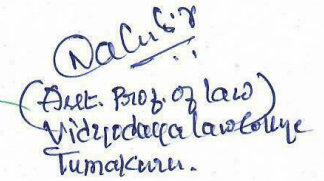 (Asst. Prof. of law)
Vidyodaya law College
Tumakuru.